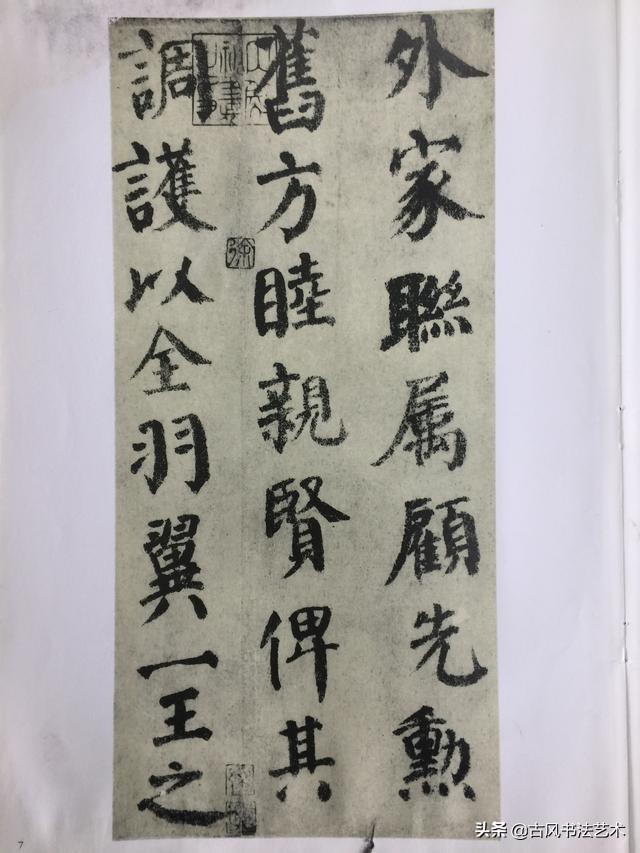 外家聯属顧先勲
舊方睦親賢俾其
調護以全羽翼一王之
7
头条 @古风书法艺术